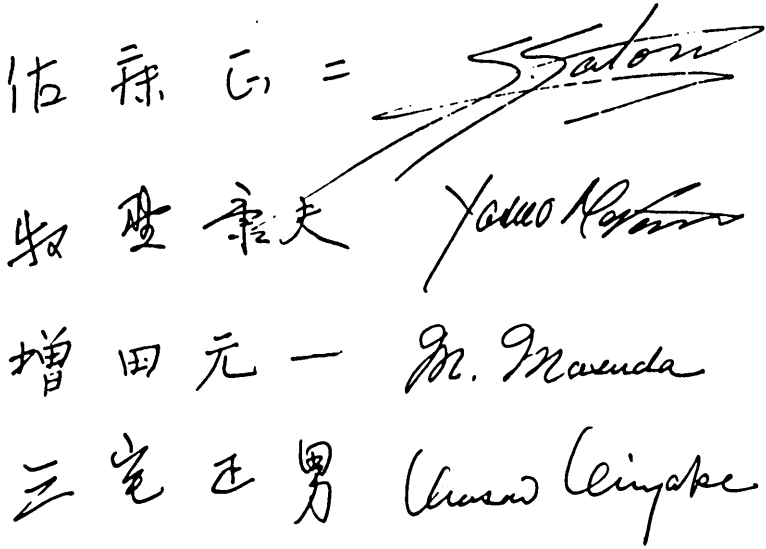 佐藤正二 S. Satow
牧野康夫 Yasuo
増田元一 M. Masuda
三宅正男 Masao Miyake